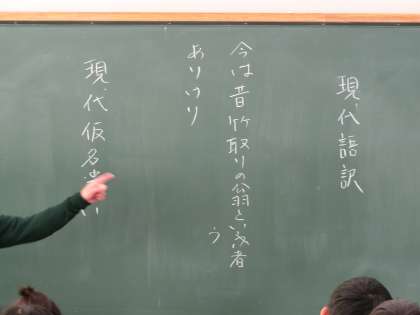 現代語訳
今は昔竹取りの翁といふ者
う
ありけり
現代仮名遣い